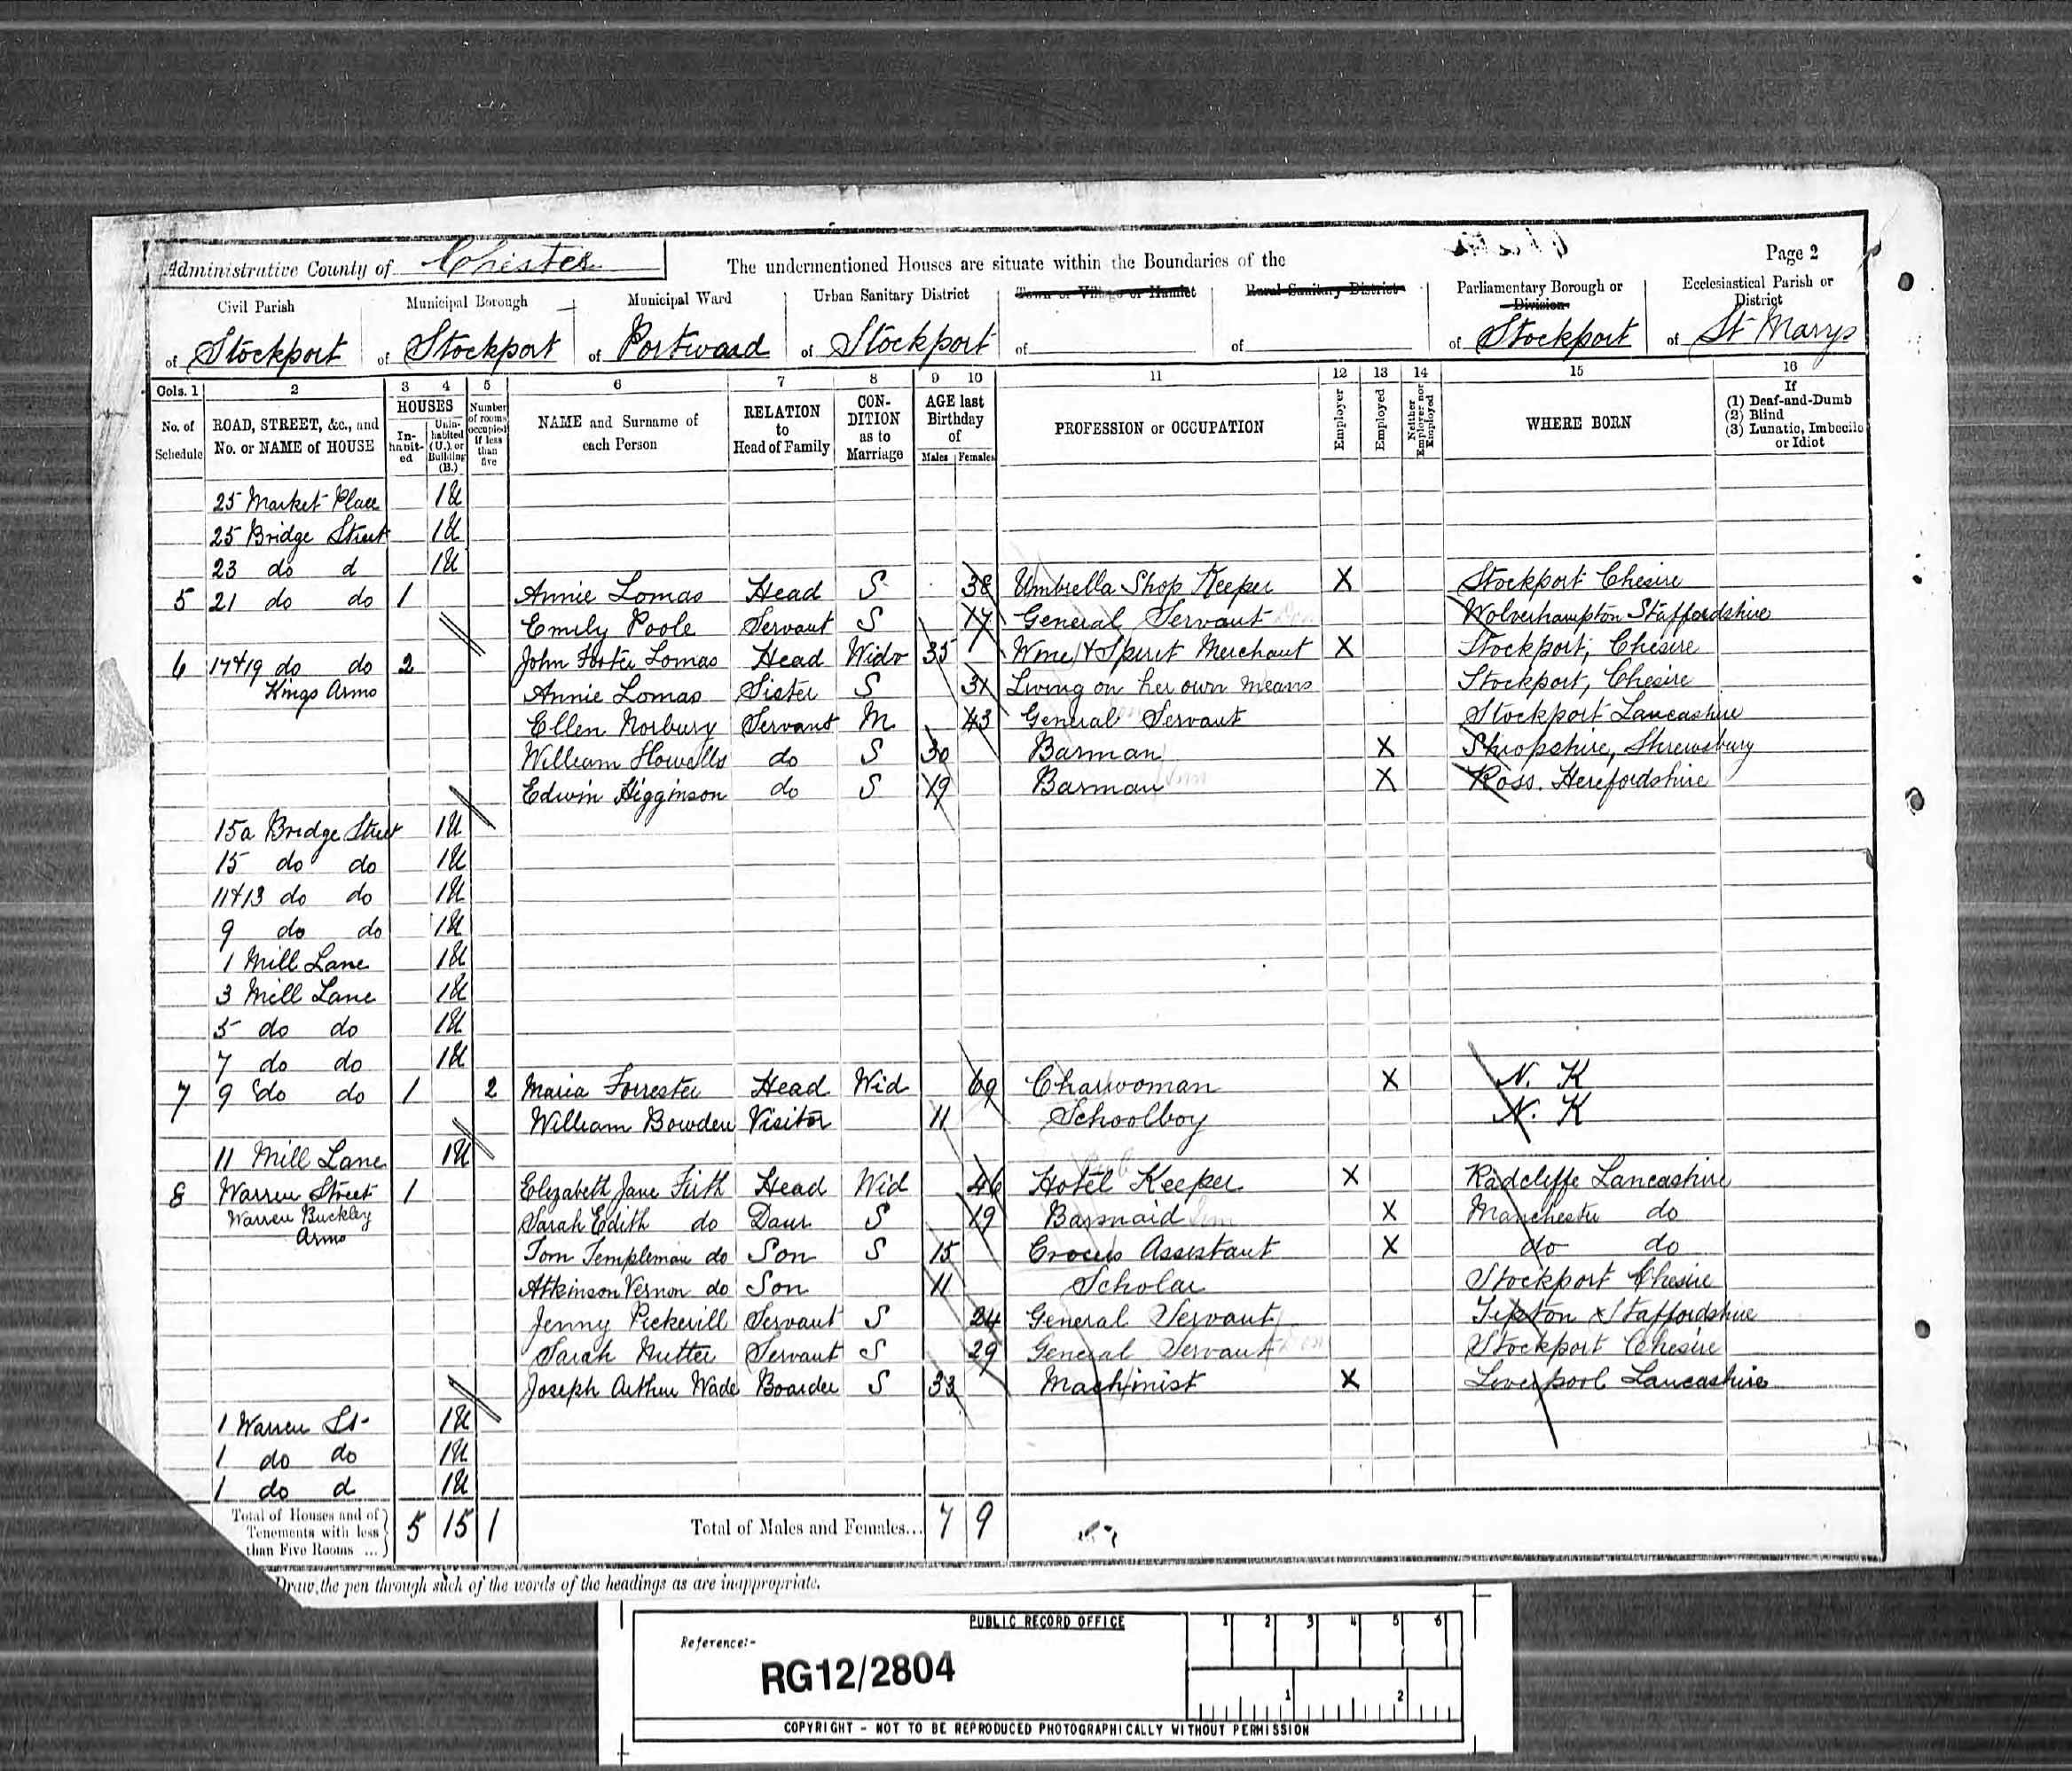 Administrative County of Chester The undermentioned Houses are situate within the Boundaries of the Page 2
Civil Parish Municipal Borough Municipal Ward Urban Sanitary District Town or Village or Hamlet Rural Sanitary District Parliamentary Borough or Division Ecclesiastical Parish or District
of Stockport of Stockport of Portwood of Stockport of of of Stockport of St Marys
Cols. 1 2 3 4 5 6 7 8 9 10 11 12 13 14 15 16
No. of Schedule ROAD, STREET, &c., and No. or NAME of HOUSE HOUSES Inhabited Uninhabited (U.) or Building (B.) Number of rooms occupied if less than five NAME and Surname of each Person RELATION to Head of Family CONDITION as to Marriage AGE last Birthday of Males Females PROFESSION or OCCUPATION Employer Employed Neither Employer nor Employed WHERE BORN If (1) Deaf-and-Dumb (2) Blind (3) Lunatic, Imbecile or Idiot
25 Market Place 1U
25 Bridge Street 1U
23 do d 1U
5 21 do do 1 Annie Lomas Head S 38 Umbrella Shop Keeper X Stockport Chesire
Emily Poole Servant S 17 General Servant Wolverhampton Staffordshire
6 17+19 do do 2 John Foster Lomas Head Widr 35 Wine + Spirit Merchant X Stockport, Chesire
Kings Arms Annie Lomas Sister S 31 Living on her own means Stockport, Chesire
Ellen Norbury Servant M 43 General Servant Stockport Lancashire
William Howells do S 30 Barman X Shropshire, Shrewsbury
Edwin Higginson do S 19 Barman X Ross. Herefordshire
15a Bridge Street 1U
15 do do 1U
11+13 do do 1U
9 do do 1U
1 Mill Lane 1U
3 Mill Lane 1U
5 do do 1U
7 do do 1U
7 9 do do 1 2 Maria Forrester Head Wid 69 Charwoman X N. K
William Bowden Visitor 11 Schoolboy N. K
11 Mill Lane 1U
8 Warren Street 1 Elizabeth Jane Firth Head Wid 46 Hotel Keeper X Radcliffe Lancashire
Warren Buckley Sarah Edith do Daur S 19 Barmaid X Manchester do
Arms Tom Templeman do Son S 15 Grocers Assistant X do do
Atkinson Vernon do Son 11 Scholar Stockport Chesire
Jenny Pickerill Servant S 24 General Servant Tipton Staffordshire
Sarah Nutter Servant S 29 General Servant Stockport Chesire
Joseph Arthur Wade Boarder S 33 Machinist X Liverpool Lancashire
1 Warren St 1U
1 do do 1U
1 do d 1U
Total of Houses and of Tenements with less than Five Rooms ... 5 15 1 Total of Males and Females... 7 9
Draw the pen through such of the words of the headings as are inappropriate.
PUBLIC RECORD OFFICE
Reference:-
RG12/2804
1 2 3 4 5 6
1 2
COPYRIGHT - NOT TO BE REPRODUCED PHOTOGRAPHICALLY WITHOUT PERMISSION